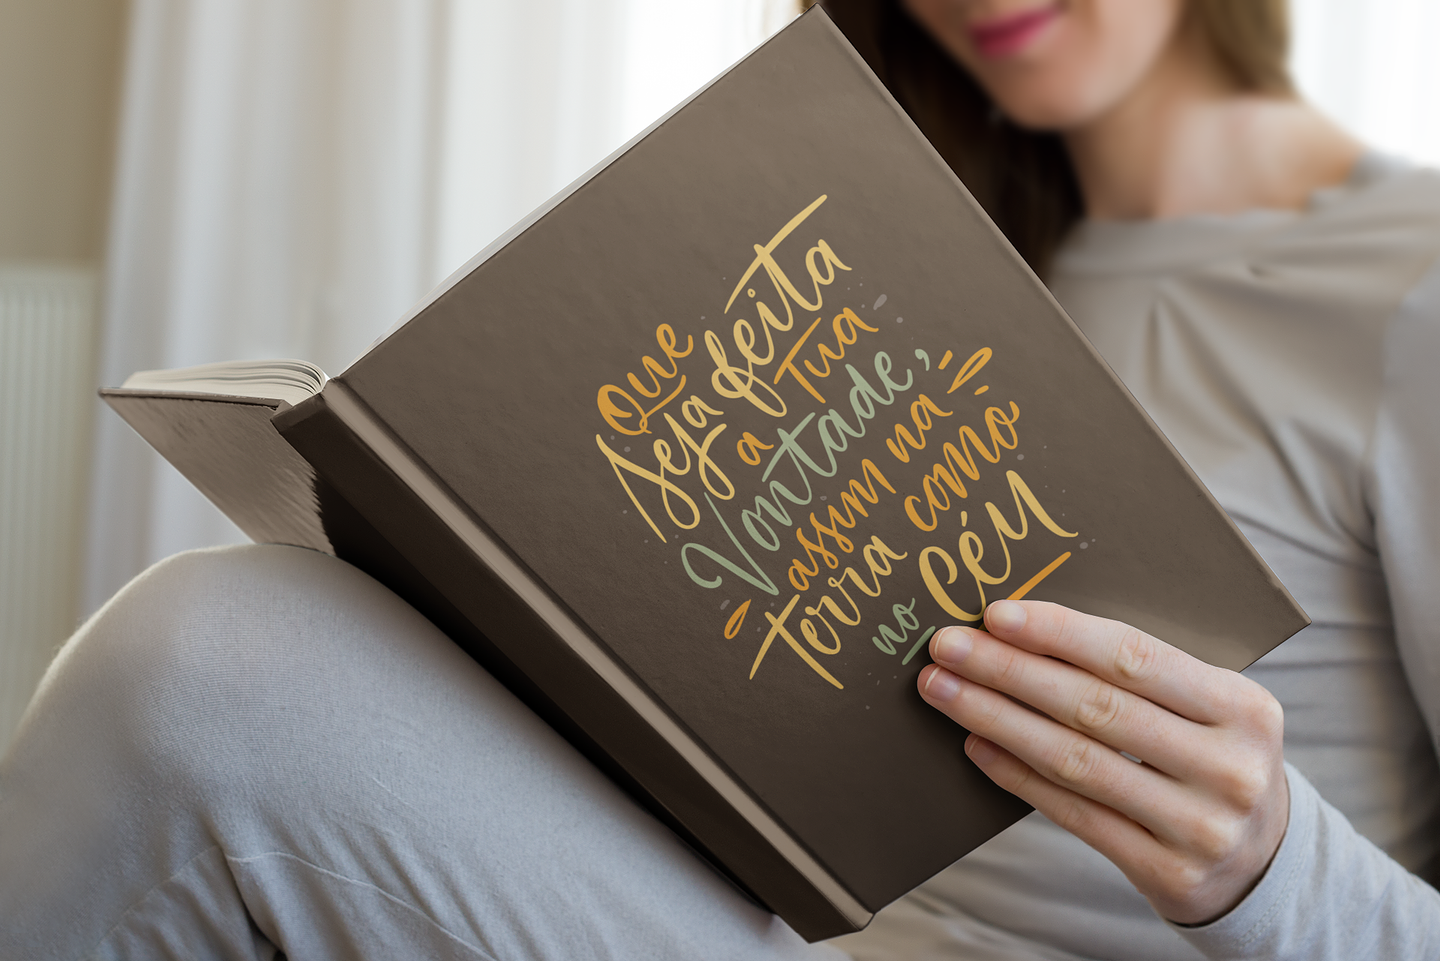 Que
seja feita
a Tua
Vontade,
assim na
terra como
no Céu